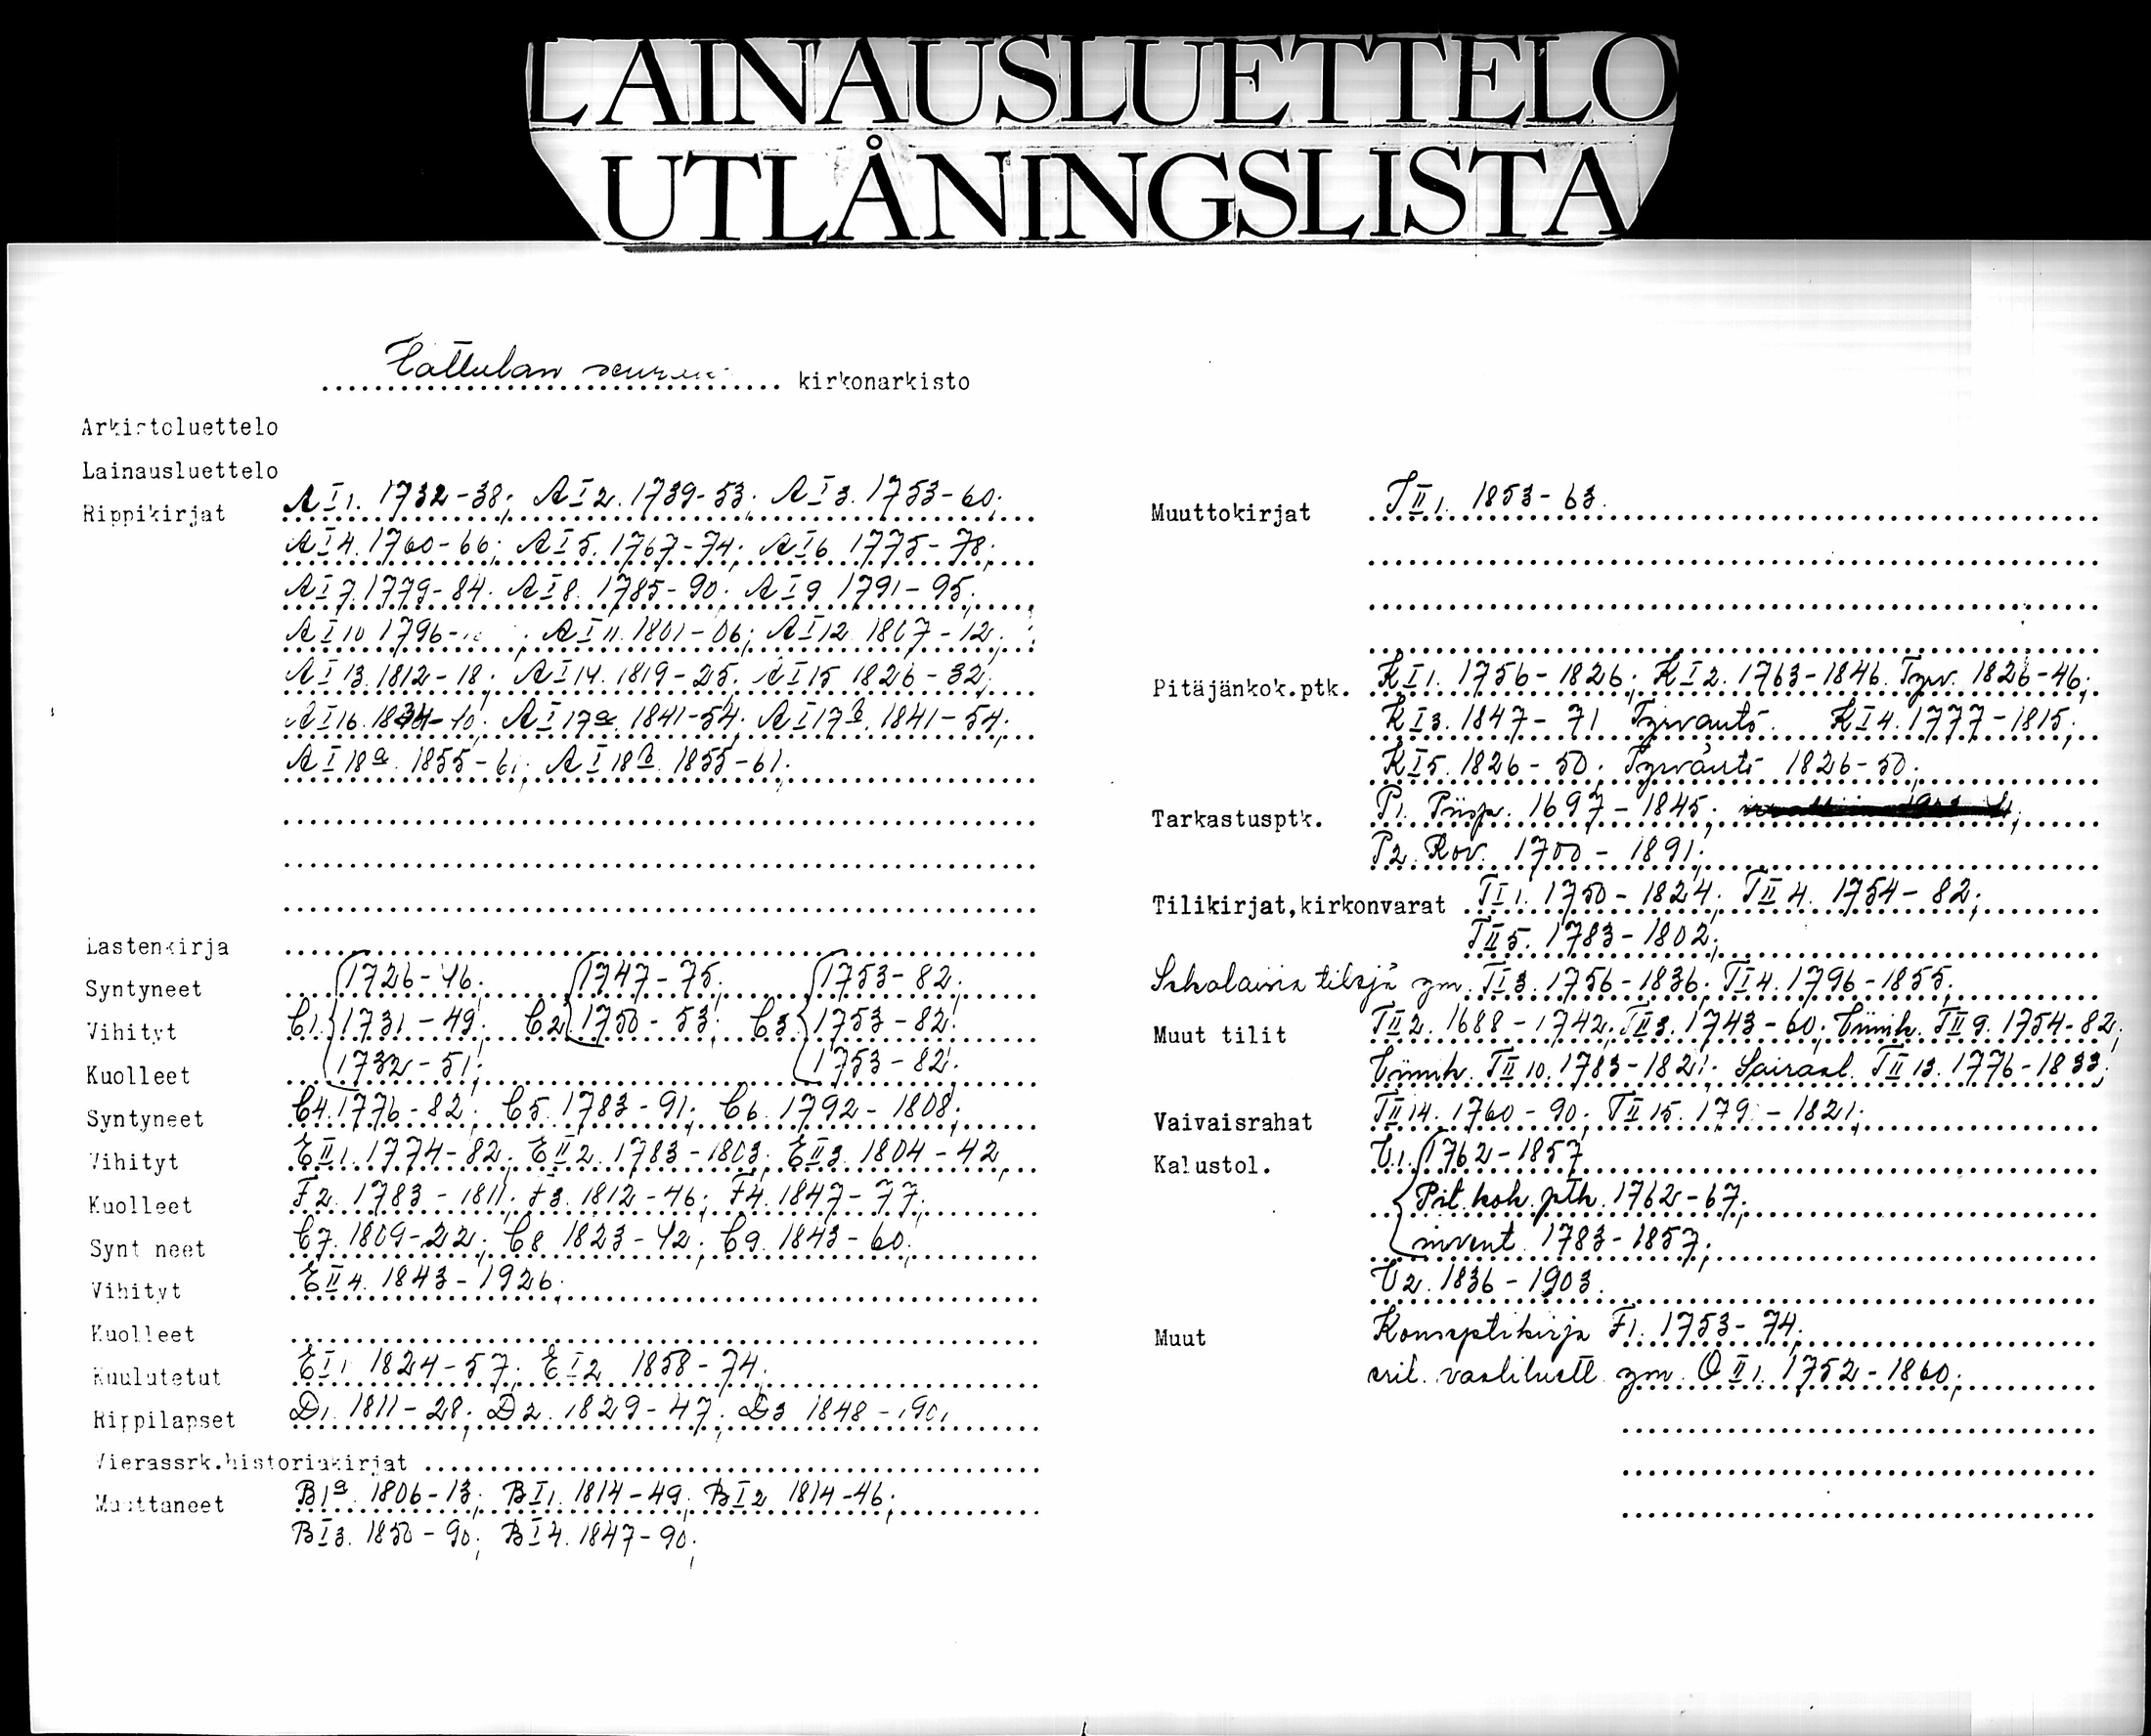 LAINAUSLUETTELO
UTLÅNINGSLISTA
Hattulan kirkonarkisto
Arkistoluettelo
Lainausluettelo
Rippikirjat A I 1. 1732-38; A I 2. 1739-53; A I 3. 1753-60;
A I 4. 1760-66; A I 5. 1767-74; A I 6 1775-78;
A I 7. 1779-84; A I 8. 1785-90; A I 9 1791-95;
A I 10 1796- ; A I 11. 1801-06; A I 12. 1807-12;
A I 13. 1812-18; A I 14. 1819-25; A I 15 1826-32;
A I 16. 1834-40; A I 17a. 1841-54; A I 17b. 1841-54;
A I 18a. 1855-61; A I 18b. 1855-61;
Lastenkirja
Syntyneet 1726-46; 1747-75; 1753-82;
Vihityt C1. 1731-49; C2 1750-53; C3 1753-82;
Kuolleet 1732-51; 1753-82;
Syntyneet C4. 1776-82; C5. 1783-91; C6. 1792-1808;
Vihityt E II 1. 1774-82; E II 2. 1783-1803; E II 3. 1804-42,
Kuolleet F2. 1783-1811; F3. 1812-46; F4. 1847-77;
Synt neet C7. 1809-22; C8. 1823-42; C9. 1843-60;
Vihityt E II 4. 1843-1926;
Kuolleet
Kuulutetut E I 1 1824-57; E I 2 1858-74;
Rippilapset D1. 1811-28; D2. 1829-47; D3 1848-1901
Vierassrk.historiakirjat
Muuttaneet B1a. 1806-13; B I 1. 1814-49; B I 2 1814-46;
B I 3. 1850-90; B I 4. 1847-90;
Muuttokirjat J II 1. 1853-63.
Pitäjänkok.ptk. K I 1. 1756-1826; K I 2. 1763-1846. Tyrv. 1826-46;
K I 3. 1847-71 Tyrväntö. K I 4. 1777-1815;
K I 5. 1826-50; Tyrväntö 1826-50;
Tarkastusptk. P1. Piisp. 1697-1845;
P2. Rov. 1700-1891;
Tilikirjat,kirkonvarat T I 1. 1750-1824; T II 4. 1754-82;
T II 5. 1783-1802;
tilejä ym. T I 3. 1756-1836; T I 4. 1796-1855;
Muut tilit T II 2. 1688-1742; T II 3. 1743-60; T II 9. 1754-82;
T II 10. 1783-1821; Sairaal. T II 13. 1776-1833;
Vaivaisrahat T II 14. 1760-90; T II 15. 179 -1821;
Kalustol. U1. 1762-1857
Pit. kok. ptk. 1762-67;
invent. 1783-1857;
U2. 1836-1903.
Muut Konseptikirja F1. 1753-74;
eril. vaaliluett. ym. O II 1. 1752-1860;